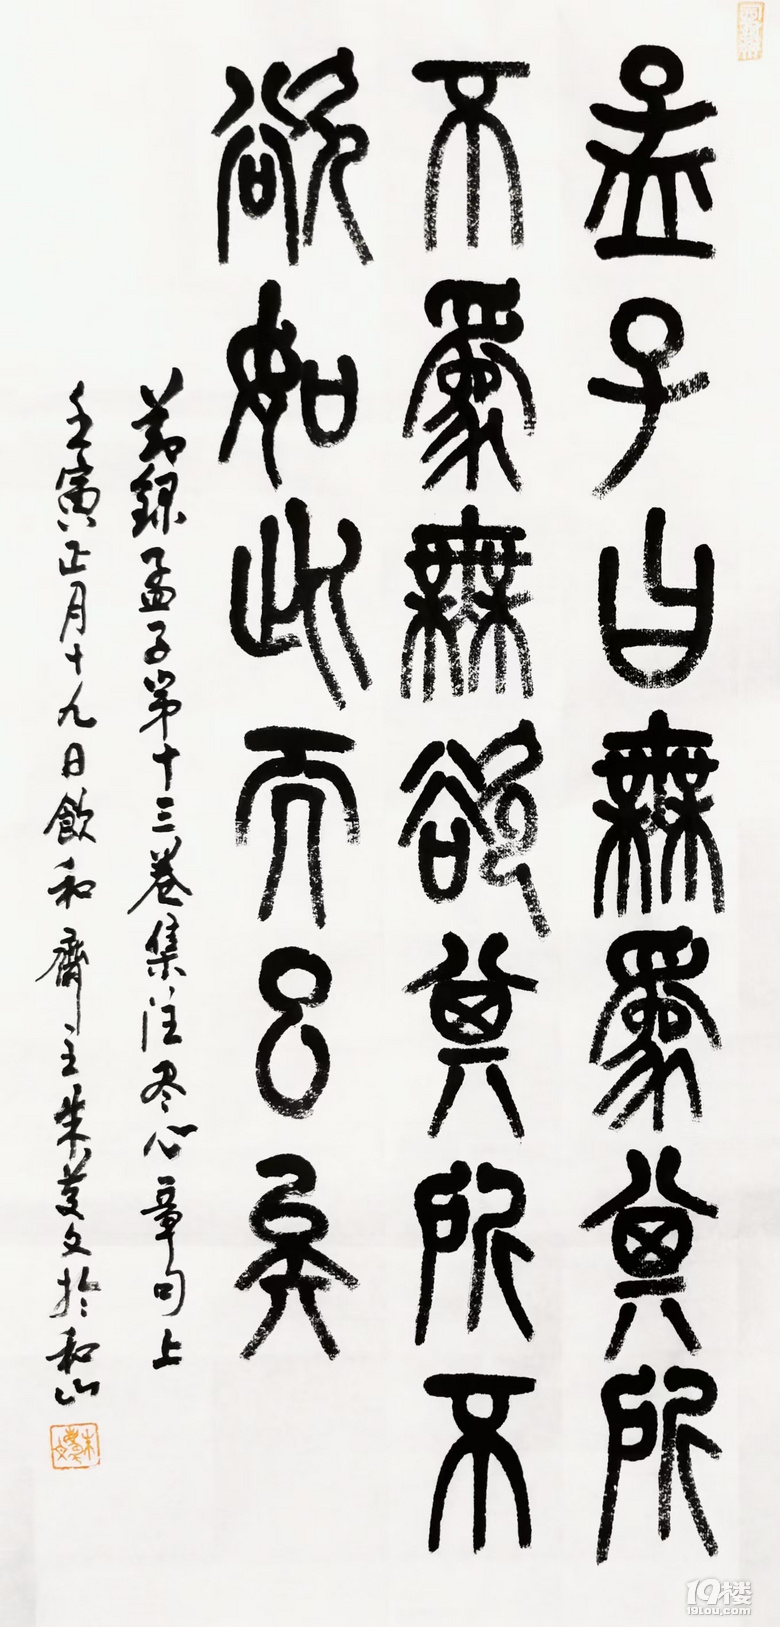 孟子曰無爲其所
不爲無欲其所不
欲如此而已矣
節録孟子第十三卷集注尽心章句上
壬寅正月十九日飲和齋主朱茂文於和山
19楼
19lou.com